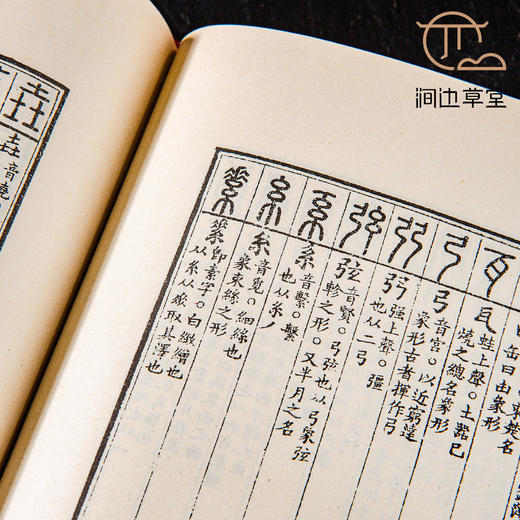 涧边草堂
缶曰由象形
瓦蛙上聲。土器已
燒之總名象形
弓音宮。以近窮遠
象形古者揮作弓
弜强上聲。彊
也从二弓
弦音賢。弓弦也从弓象弦
軫之形。又半月之名
系音繫。繫
也从糸丿
糸音覓。細絲也
象束絲之形
即素字。白緻繒也
从糸从𠂹取其澤也
垚
垚音堯